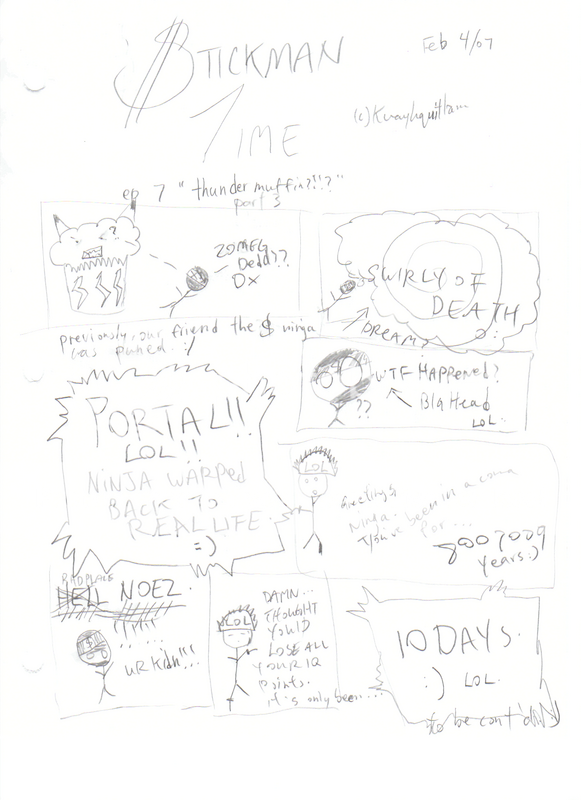 $TICKMAN
TIME
Feb 4/07
ep 7 "thunder muffin?!!?"
part 3
?
ZOMFG
Dedd??
Dx
SWIRLY OF
DEATH
DREAM?
D:
previously, our friend the $ ninja
was pwned. :/
WTF HAPPENED?
??
Big Head
LOL.
PORTAL!!
LOL!!
NINJA WARPED
BACK TO
REAL LIFE.
=)
LOL
Greetings
Ninja.
You've been in a coma
for...
8007009
years:)
BAD PLACE
HELL NOEZ.
$
UR Kidn!!!
LOL
DAMN...
THOUGHT
YOU'D
LOSE ALL
YOUR IQ
points.
it's only been....
10 DAYS.
:) LOL.
to be cont'd